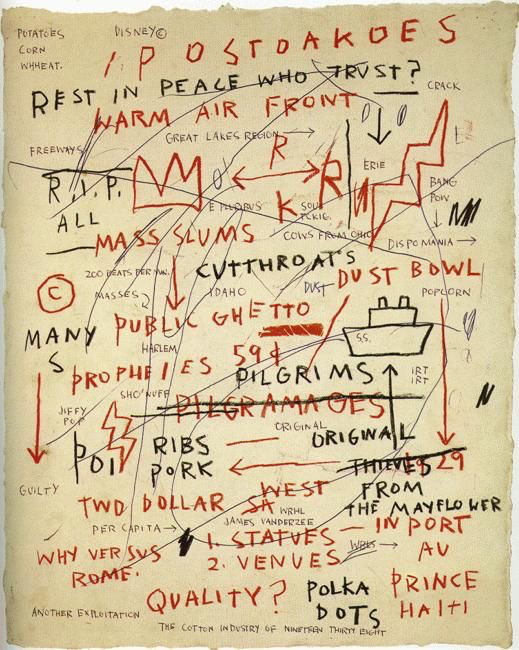 POTATOES
CORN
WHHEAT.
DISNEY©
POSTDAKOES
REST IN PEACE WHO TRUST?
CRACK
WARM AIR FRONT
GREAT LAKES REGION
FREEWAYS
R
R
ERIE
R.I.P.
BANG
POW
E PLURIBUS
K
SOU
PCKIG.
ALL
MASS SLUMS
COWS FROM OHIO
DISPOMANIA
CUTTHROATS
200 BEATS PER MIN.
DUST BOWL
©
MASSES
IDAHO
DUST
POPCORN
PUBLIC GHETTO
MANY
S
HARLEM
59¢
S.S.
PROPHEIES
PILGRIMS
IRT
IRT
SHO'NUFF
PILGRAMAGES
JIFFY
POP
ORIGINAL
ORIGINAL
POI
RIBS
PORK
THIEVES
29
GUILTY
FROM
THE MAYFLOWER
WEST
TWO DOLLAR SA
WRHL
JAMES VANDERZEE
PER CAPITA
1. STATUES — IN PORT
AU
2. VENUES
WRLS
WHY VERSUS
ROME.
PRINCE
HAITI
QUALITY?
POLKA
DOTS
ANOTHER EXPLOITATION
THE COTTON INDUSTRY OF NINETEEN THIRTY EIGHT